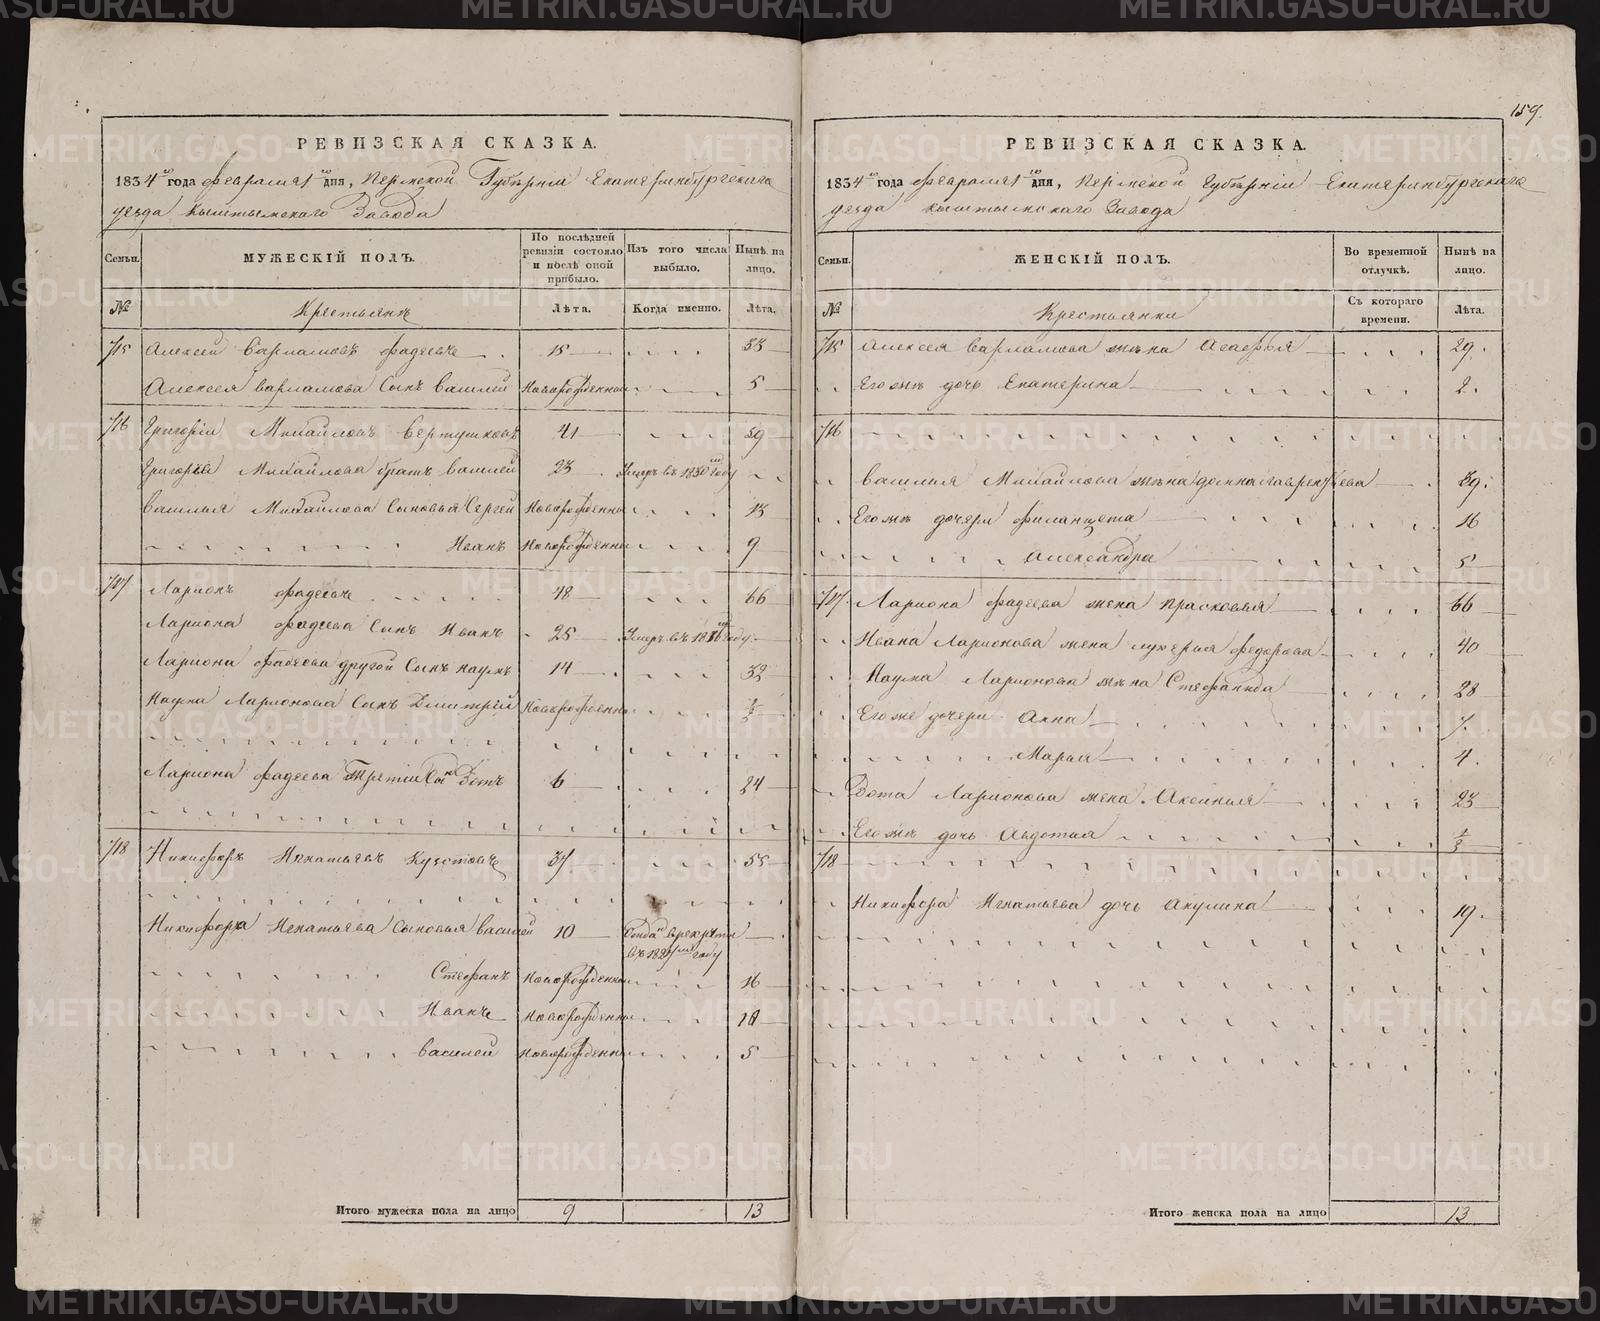 159.
РЕВИЗСКАЯ СКАЗКА.
1834го года февраля 1го дня, Пермской Губерніи Екатеринбургскаго
уезда Кыштымскаго Завода
Семьи.
МУЖЕСКІЙ ПОЛЪ.
По послѣдней ревизіи состояло и послѣ оной прибыло.
Изъ того числа выбыло.
Нынѣ на лицо.
№
Крестьянъ
Лѣта.
Когда именно.
Лѣта.
715 Алексей Варламовъ Фадеевъ 15 33
Алексея Варламова Сынъ Василей Новорожденной 5
716 Григорій Михайловъ Вертушковъ 41 59
Григорья Михайлова братъ Василей 23 Умеръ въ 1830м году
Василья Михайлова Сыновья Сергей Новорожденной 13
Иванъ Новорожденной 9
717 Ларионъ Фадеевъ 48 66
Лариона Фадеева Сынъ Иванъ 25 Умеръ въ году
Лариона Фадеева другой Сынъ Наумъ 14 32
Наума Ларионова Сынъ Дмитрей Новорожденной 1/2
Лариона Фадеева Третій Сынъ Зотъ 6 24
718 Никифоръ Игнатьевъ 37 55
Никифора Игнатьева Сыновья Василей 10 Отданъ в рекруты
въ году
Стефанъ Новорожденной 16
Иванъ Новорожденной 10
Василей Новорожденной 5
Итого мужеска пола на лицо 9 13
РЕВИЗСКАЯ СКАЗКА.
1834го года февраля 1го дня, Пермской Губерніи Екатеринбургскаго
уезда Кыштымскаго Завода
Семьи.
ЖЕНСКІЙ ПОЛЪ.
Во временной отлучкѣ.
Нынѣ на лицо.
№
Крестьянки
Съ котораго времени.
Лѣта.
715 Алексея Варламова жена Агафья 29
Его же дочь Екатерина 2
716
Василья Михайлова жена Домна Лаврентьева 39
Его же дочери 16
Александра 5
717 Лариона Фадеева жена Прасковья 66
Ивана Ларионова жена Лукерья Федорова 40
Наума Ларионова жена Стефанида 28
Его же дочери Анна 7
Марья 4
Зота Ларионова жена Аксинья 23
Его же дочь Авдотья
718
Никифора Игнатьева дочь Акулина 19
Итого женска пола на лицо 13